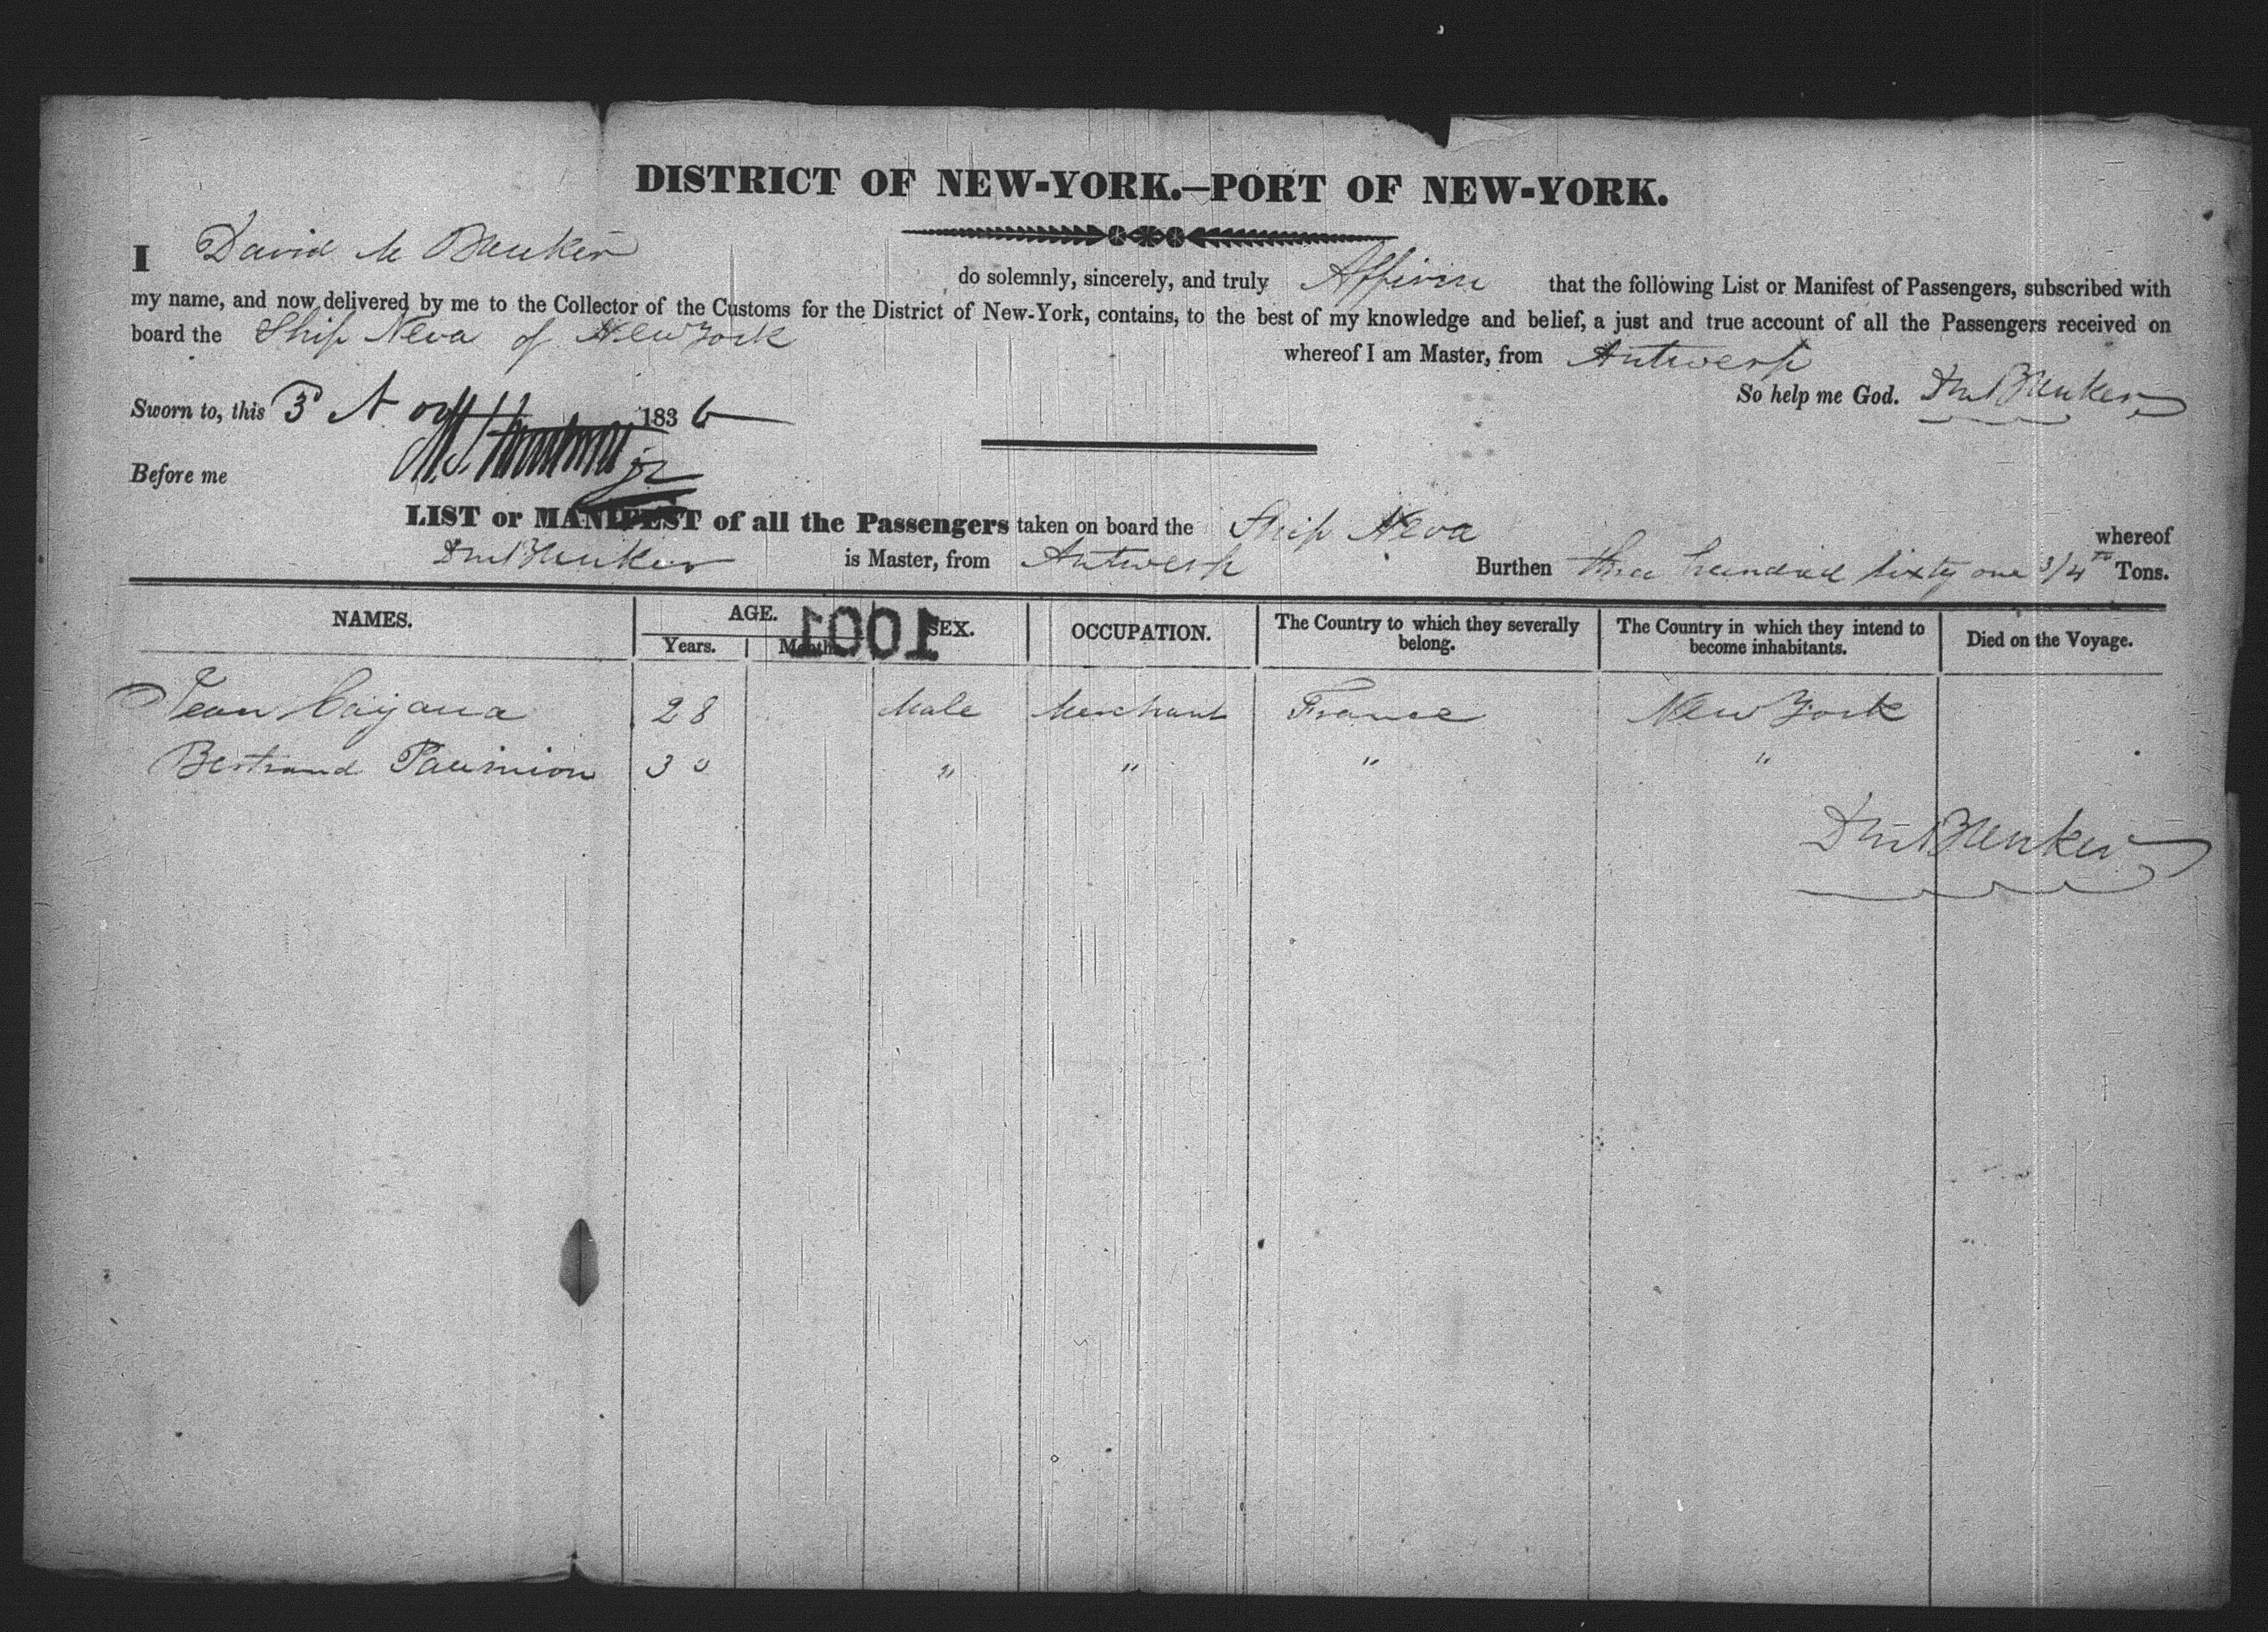 DISTRICT OF NEW-YORK.—PORT OF NEW-YORK.
I David M Bunker do solemnly, sincerely, and truly Affirm that the following List or Manifest of Passengers, subscribed with
my name, and now delivered by me to the Collector of the Customs for the District of New-York, contains, to the best of my knowledge and belief, a just and true account of all the Passengers received on
board the Ship Neva of New York whereof I am Master, from Antwerp
So help me God. DM Bunker
Sworn to, this 3d Nov 1836
Before me
LIST or MANIFEST of all the Passengers taken on board the Ship Neva whereof
DM Bunker is Master, from Antwerp Burthen three hundred sixty one 3/4th Tons.
NAMES. AGE. SEX. OCCUPATION. The Country to which they severally belong. The Country in which they intend to become inhabitants. Died on the Voyage.
Years. Months.
1001
Jean 28 Male Merchant France New York
Bertrand 30 " " " "
DM Bunker